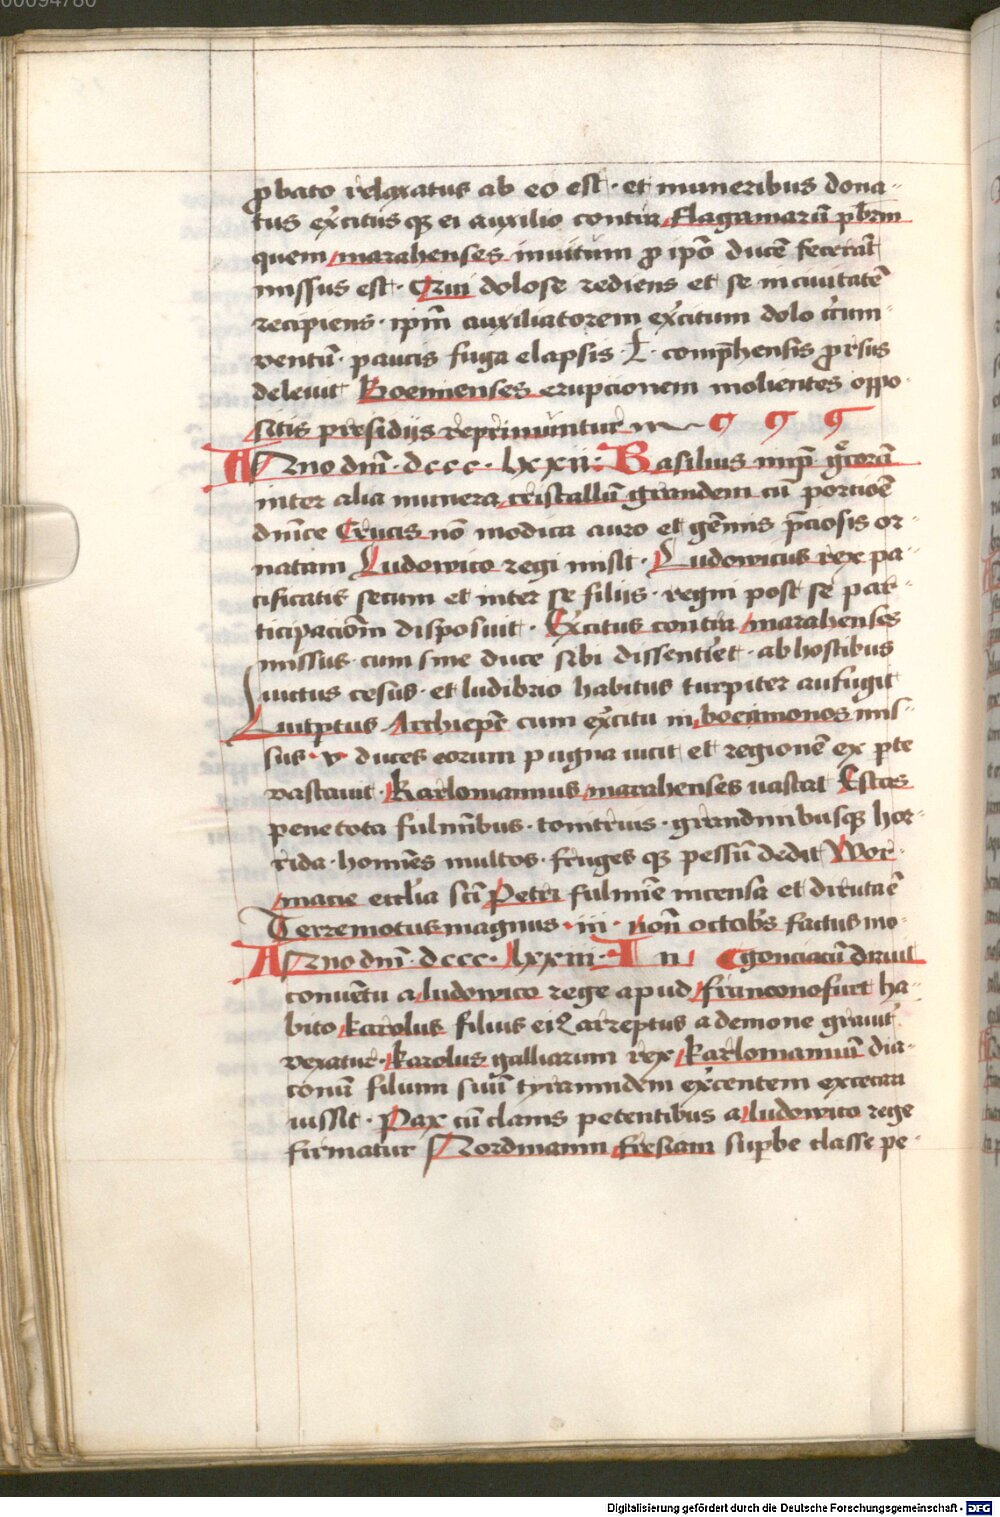 00094780
ꝓbato relaxatus ab eo est · et muneribus dona-
tus ex̄citusqꝫ ei auxilio contra Flagamarū pb̄rm
quem marahenses inuitum ꝓ ip̄o ducē fecerāt
missus est · Qui dolose rediens et se in ciuitatē
recipiens · ip̄m auxiliatorem ex̄citum dolo cͥcum-
ventū · paucis fuga elapsis · ł · comp̄hensis ꝓrsus
deleuit Boemienses erupcionem molientes oppo-
sitis presidijs reprimūntur
Anno dm̄ · dccc · lxxii: Basilius imp̄ · gͤcorū
inter alia munera cristallū grandem cū portiōē
dm̄ce Crucis nō modica auro et gēmis p̄ciosis or-
natam Ludowico regi misit · Ludowicus rex pa-
cificatis secum et inter se filijs · regni post se par-
ticipaciōm disposuit · Ex̄citus contra marahenses
missus · cum sine duce sibi dissentiēt · ab hostibus
uictus cesus · et ludibrio habitus turpiter aufugit
Luitptus Archiep̄c cum ex̄citu in boeamonos mis-
sus · v · duces eorum pugna uicit et regionē ex p̱te
vastauit · Karlomannus marahenses uastat Estas
pene tota fulmībus · tonitruis · grandinibusqꝫ hor-
rida · homīes multos · fruges qꝫ pessū dedit Wor-
macie eccl̄ia scī Petri fulmīe incensa et diruta ē
Terremotus magnus · iii · non̄ octob̄s factus in o-
Anno dm̄ · dccc · lxxiii · In
conuētu a ludowico rege apud franconofurt ha-
bito karolus filius eiꝰ arreptus a demone grauit̄
vexatur · karolus galliarum rex karlomannū dia-
conū filium suū tyrannidem ex̄centem excecari
iussit · Pax cū danis petentibus a ludowico rege
firmatur Nordmanni fresiam sup̱be classe pe-
Digitalisierung gefördert durch die Deutsche Forschungsgemeinschaft - DFG